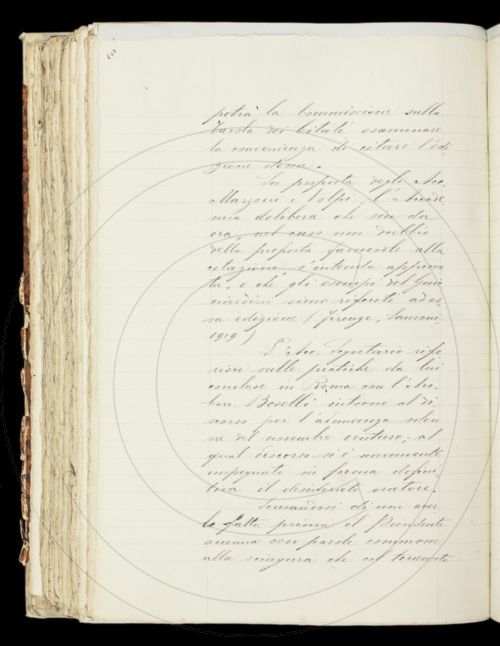 potrà la Commissione sulla
Tavola dei Citati esaminare
la convenienza di citare l'edi
zione stessa.
La proposta degli Acc.
Mazzoni e Volpi, l'
una delibera che sin da
ora, nel caso non dubbio
della proposta favorevole alla
citazione s'intenda approva
ta, e che gli esempi del Guic
ciardini siano riferiti ad es
sa edizione (Firenze, Sansoni,
1919)
L'Acc. Segretario rife
risce sulle pratiche da lui
condotte in Roma con l'
on. Boselli intorno al di
scorso per l'adunanza solen
ne del novembre venturo, al
qual discorso si è nuovamente
impegnato in forma defini
tiva il desiderato oratore.
Scusandosi di non aver
lo fatto prima il Presidente
accenna con parole commosse
alla sciagura che col terremoto